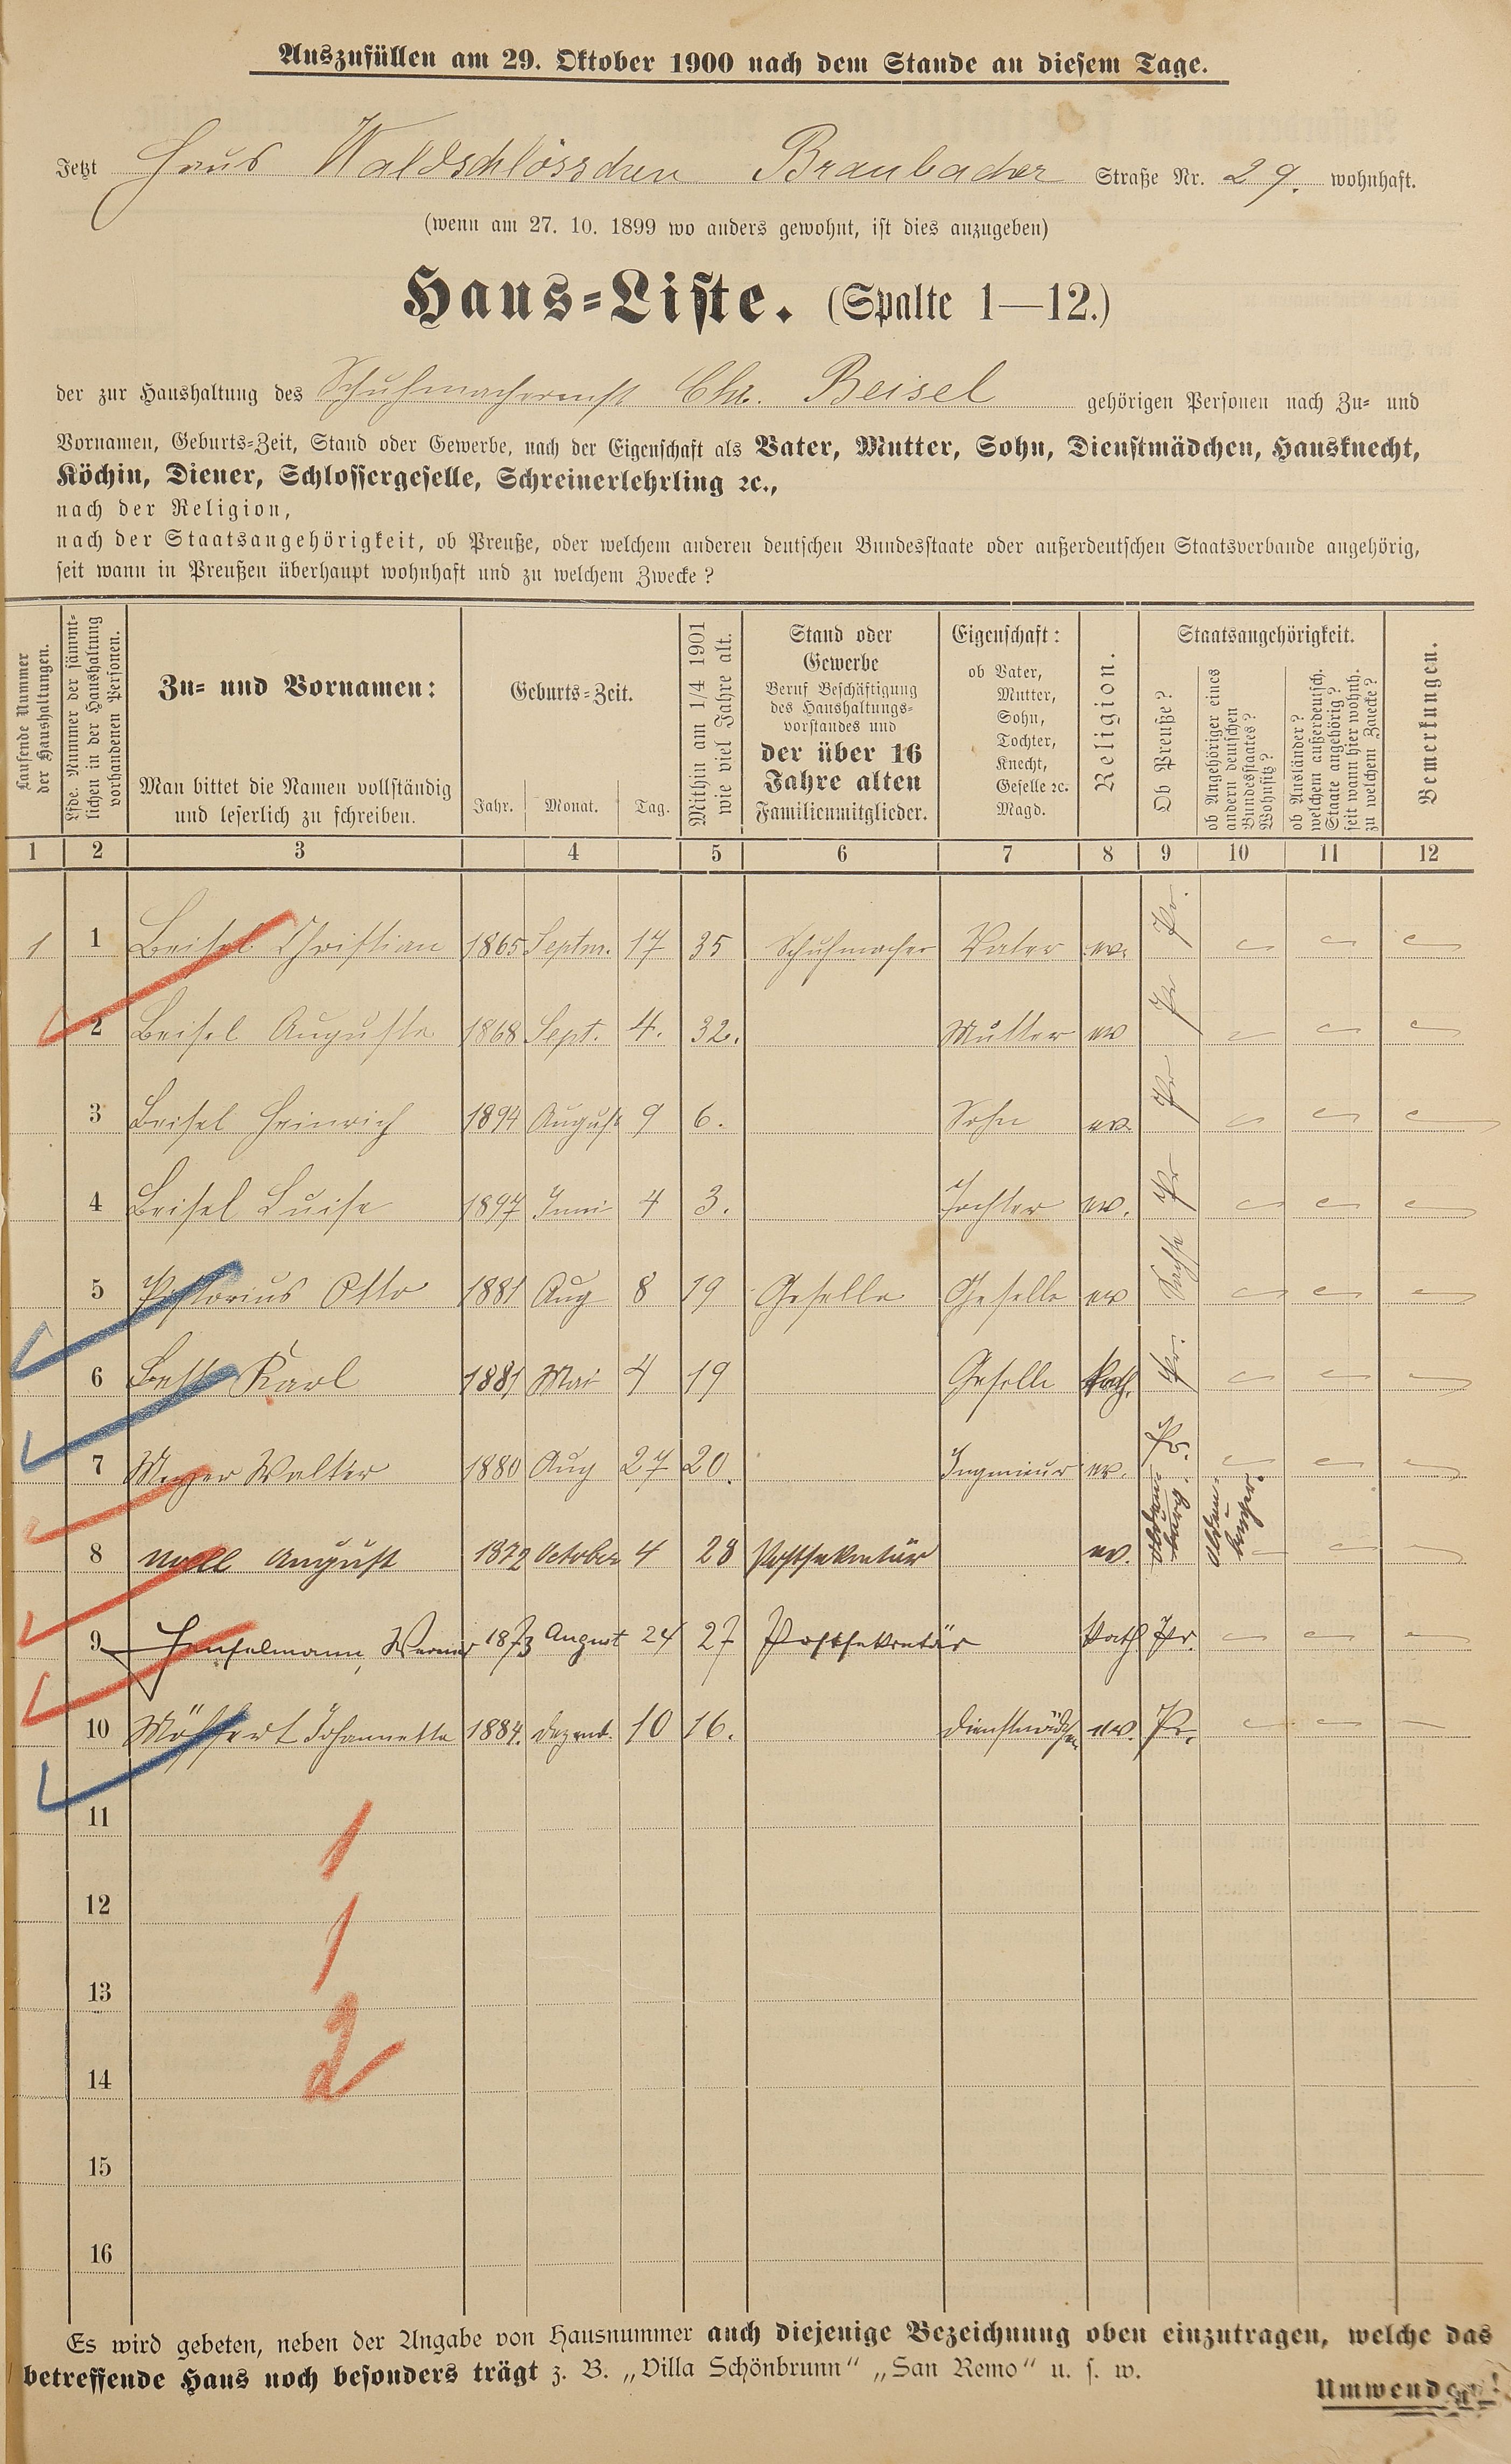 Auszufüllen am 29. Oktober 1900 nach dem Stande an diesem Tage.
Jetzt Haus Waldschlösschen Braubacher Straße Nr. 29. wohnhaft.
(wenn am 27. 10. 1899 wo anders gewohnt, ist dies anzugeben)
Haus-Liste. (Spalte 1—12.)
der zur Haushaltung des Chr. Beisel gehörigen Personen nach Zu- und
Vornamen, Geburts-Zeit, Stand oder Gewerbe, nach der Eigenschaft als Vater, Mutter, Sohn, Dienstmädchen, Hausknecht,
Köchin, Diener, Schlossergeselle, Schreinerlehrling ꝛc.,
nach der Religion,
nach der Staatsangehörigkeit, ob Preuße, oder welchem anderen deutschen Bundesstaate oder außerdeutschen Staatsverbande angehörig,
seit wann in Preußen überhaupt wohnhaft und zu welchem Zwecke?
Laufende Nummer
der Haushaltungen.
Lfde. Nummer der sämmt-
lichen in der Haushaltung
vorhandenen Personen.
Zu- und Vornamen:
Man bittet die Namen vollständig
und leserlich zu schreiben.
Geburts-Zeit.
Jahr. Monat. Tag.
Mithin am 1/4 1901
wie viel Jahre alt.
Stand oder
Gewerbe
Beruf Beschäftigung
des Haushaltungs-
vorstandes und
der über 16
Jahre alten
Familienmitglieder.
Eigenschaft:
ob Vater,
Mutter,
Sohn,
Tochter,
Knecht,
Geselle ꝛc.
Magd.
Religion.
Staatsangehörigkeit.
Ob Preuße?
ob Angehöriger eines
andern deutschen
Bundesstaates?
Wohnsitz?
ob Ausländer?
welchem außerdeutsch.
Staate angehörig?
seit wann hier wohnh.
zu welchem Zwecke?
Bemerkungen.
1 2 3 4 5 6 7 8 9 10 11 12
1 1 Beisel Christian 1865 Septm. 17 35 Schuhmacher Vater ev. Pr.
2 Beisel Auguste 1868 Sept. 4. 32. Mutter ev Pr
3 Beisel Heinrich 1894 August 9 6. Sohn ev. Pr
4 Beisel Luise 1897 Juni 4 3. Tochter ev. Pr
5 Pistorius Otto 1881 Aug 8 19 Geselle Geselle ev Sachse
6 Karl 1881 Mai 4 19 Geselle Kath. Pr.
7 Meyer Walter 1880 Aug 27 20. Ingenieur ev. Pr.
8 Noell August 1872 October 4 28 Postsekretär ev. Olden-
burg.
9 Henselmann, Werner 1873 August 24 27 Postsekretär Kath Pr.
10 Johannette 1884. Dezemb. 10 16. Dienstmädchen ev. Pr.
11
1
12
1
13
2
14
15
16
Es wird gebeten, neben der Angabe von Hausnummer auch diejenige Bezeichnung oben einzutragen, welche das
betreffende Haus noch besonders trägt z. B. „Villa Schönbrunn“ „San Remo“ u. s. w.
Umwenden!